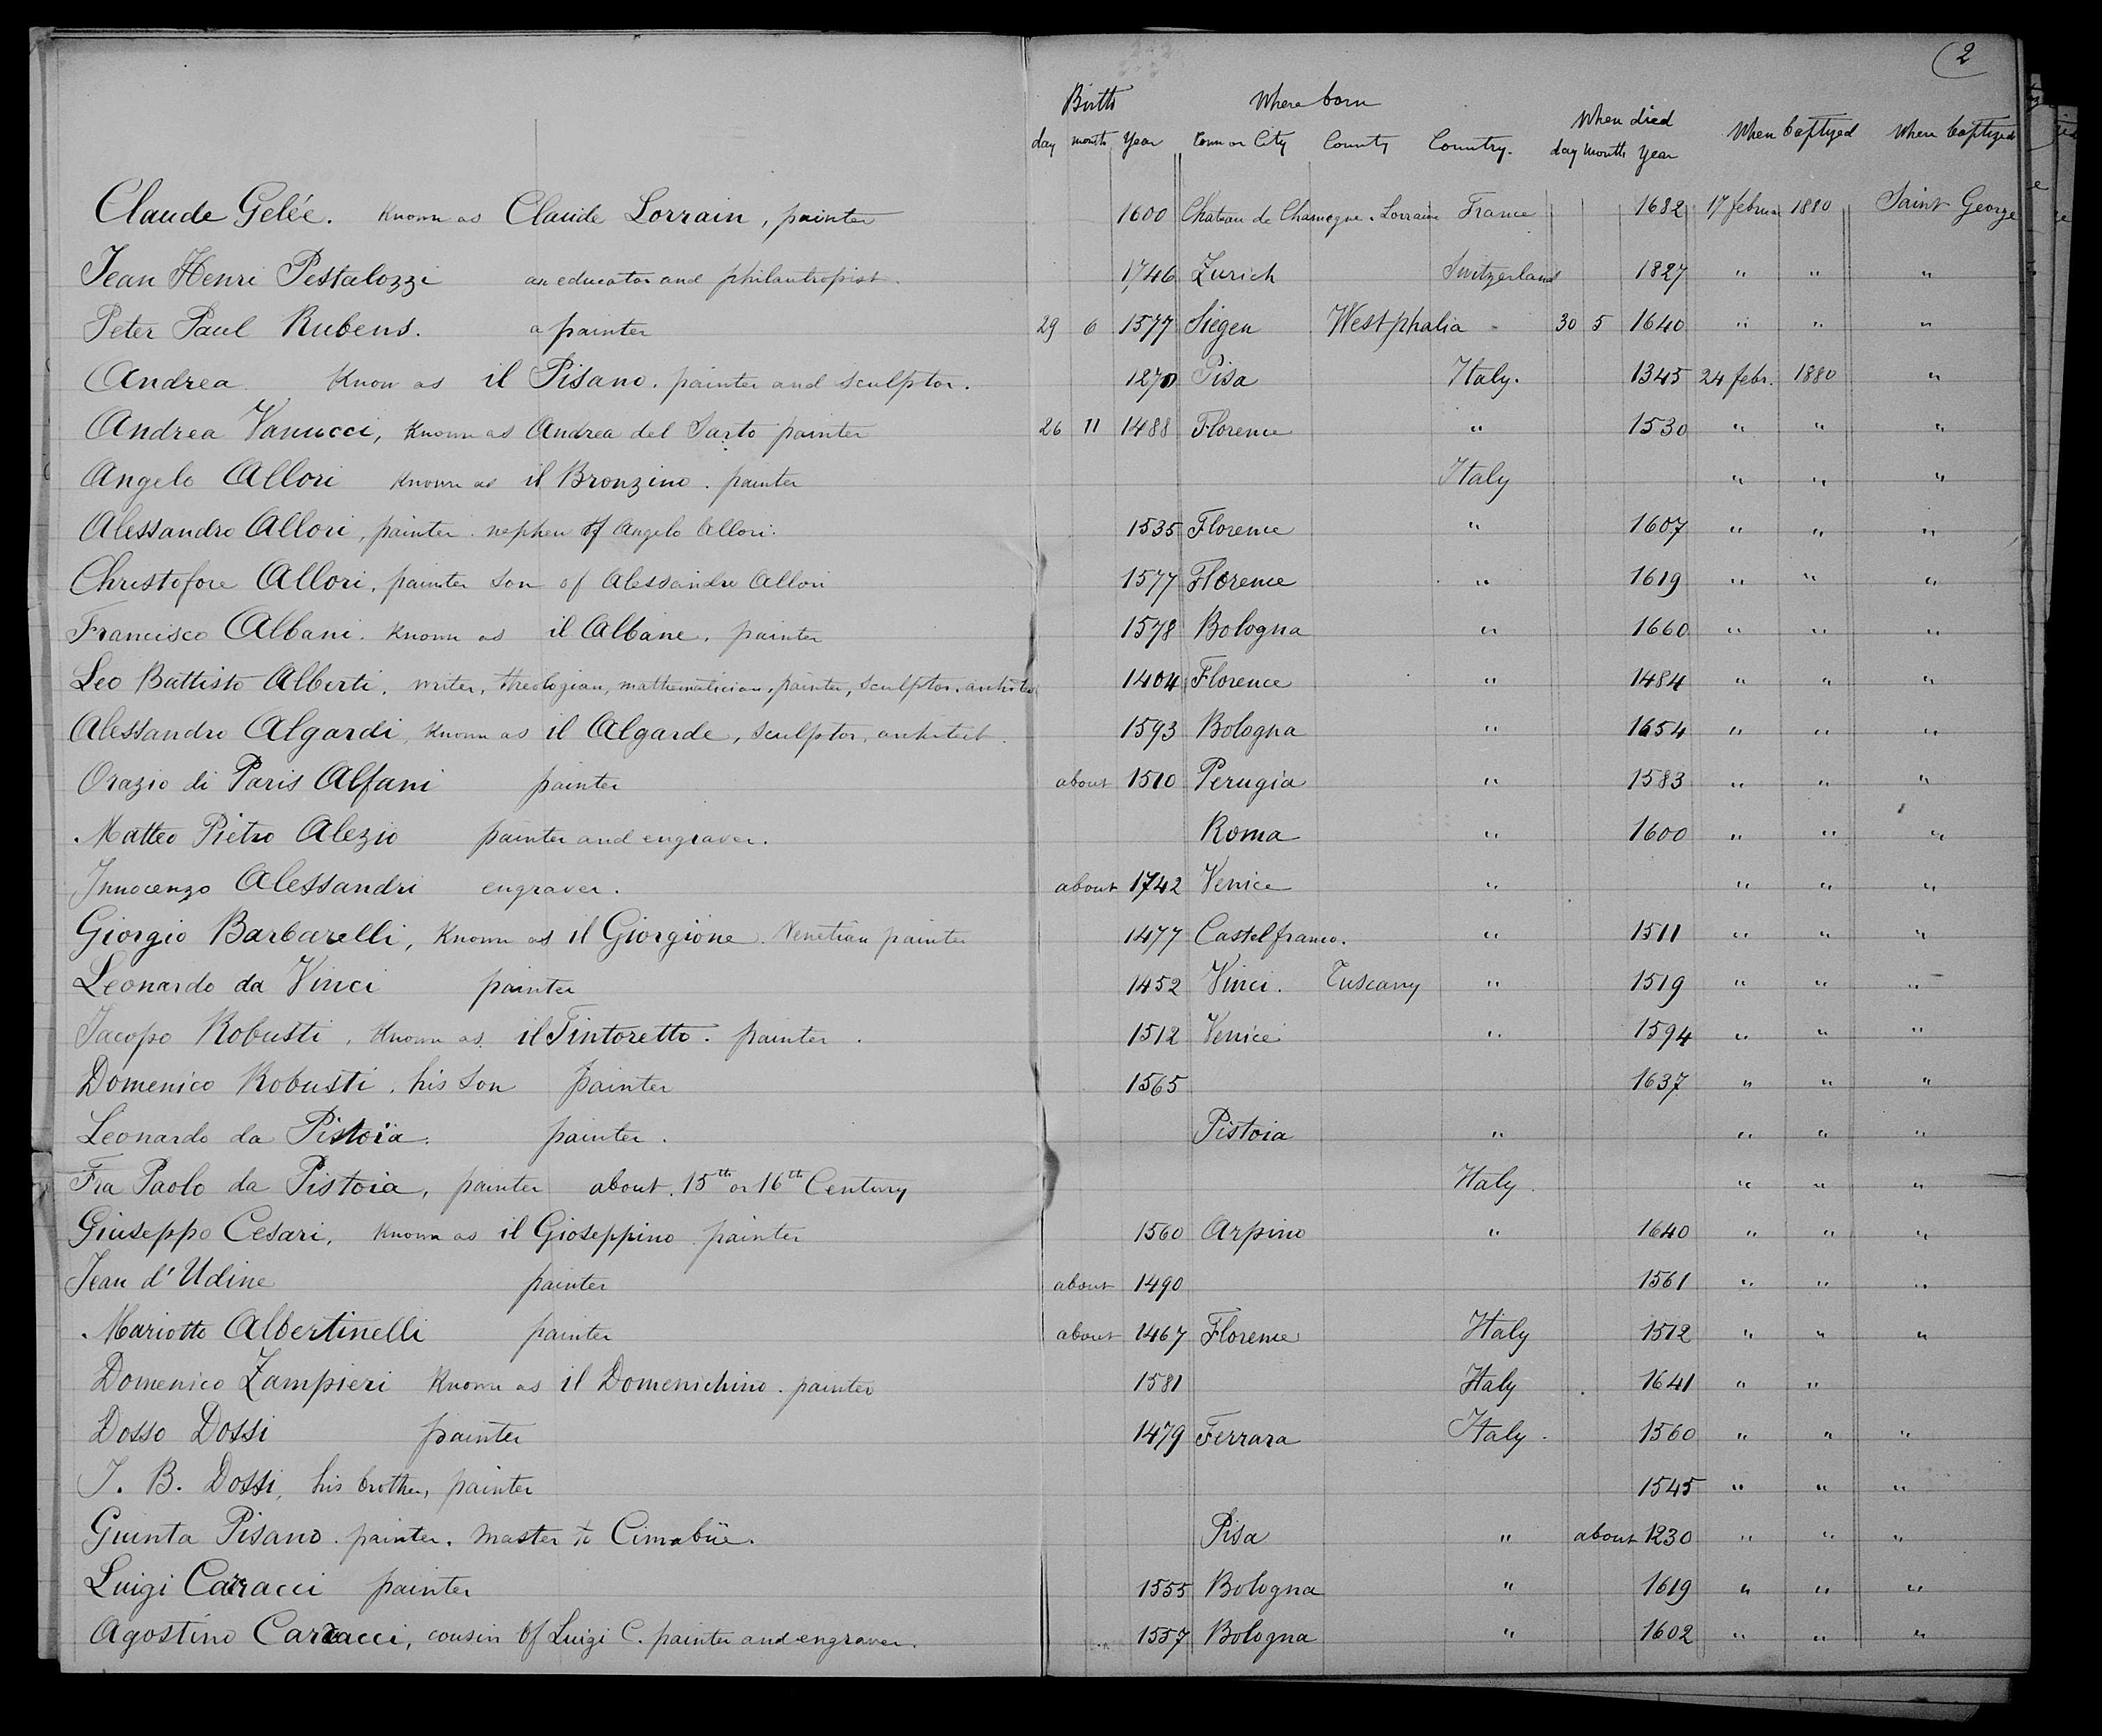 2
Birth Where born When died When baptyzed Where baptyzed
day month Year Town or City County Country. day month Year
Claude Gelée. Known as Claude Lorrain, painter 1600 Chateau de Chamagne. Lorraine France 1682 17 februar 1880 Saint George
Jean Henri Pestalozzi an educator and philantropist. 1746 Zurich Switzerland 1827 " " "
Peter Paul Rubens. a painter 29 6 1577 Siegen Westphalia - 30 5 1640 " " "
Andrea Know as il Pisano. painter and sculptor. 1270 Pisa Italy. 1345 24 febr. 1880 "
Andrea Vanucci, Known as Andrea del Sarto painter 26 11 1488 Florence " 1530 " " "
Angelo Allori Known as il Bronzino. painter Italy " " "
Alessandro Allori, painter. nephew of Angelo Allori. 1535 Florence " 1607 " " "
Christofore Allori, painter Son of Alessandro Allori 1577 Florence " 1619 " " "
Francisco Albani. Known as il Albane. painter 1578 Bologna " 1660 " " "
Leo Battisto Alberti. writer, theologian, mathematician, painter, sculptor, architect 1404 Florence " 1484 " " "
Alessandro Algardi, Known as il Algarde, sculptor, architect. 1593 Bologna " 1654 " " "
Orazio di Paris Alfani painter about 1510 Perugia " 1583 " " "
Matteo Pietro Alezio painter and engraver. Roma " 1600 " " "
Innocenzo Alessandri engraver. about 1742 Venice " " " "
Giorgio Barbarelli, Known as il Giorgione. Venetian painter 1477 Castelfranco. " 1511 " " "
Leonardo da Vinci painter 1452 Vinci. Tuscany " 1519 " " "
Jacopo Robusti, Known as il Tintoretto. painter. 1512 Venice " 1594 " " "
Domenico Robusti, his Son painter 1565 1637 " " "
Leonardo da Pistoïa. painter. Pistoia " " " "
Fra Paolo da Pistoia, painter about 15th or 16th Century Italy. " " "
Giuseppo Cesari, Known as il Gioseppino painter 1560 Arpino " 1640 " " "
Jean d'Udine painter about 1490 1561 " " "
Mariotto Albertinelli painter about 1467 Florence Italy 1512 " " "
Domenico Zampieri Known as il Domenichino. painter 1581 Italy 1641 " "
Dosso Dossi painter 1479 Ferrara Italy. 1560 " " "
J. B. Dossi, his brother, painter 1545 " " "
Guinta Pisano. painter. Master to Cimabüe. Pisa " about 1230 " " "
Luigi Carracci painter 1555 Bologna " 1619 " " "
Agostino Carracci, cousin of Luigi C. painter and engraver. 1557 Bologna " 1602 " " "